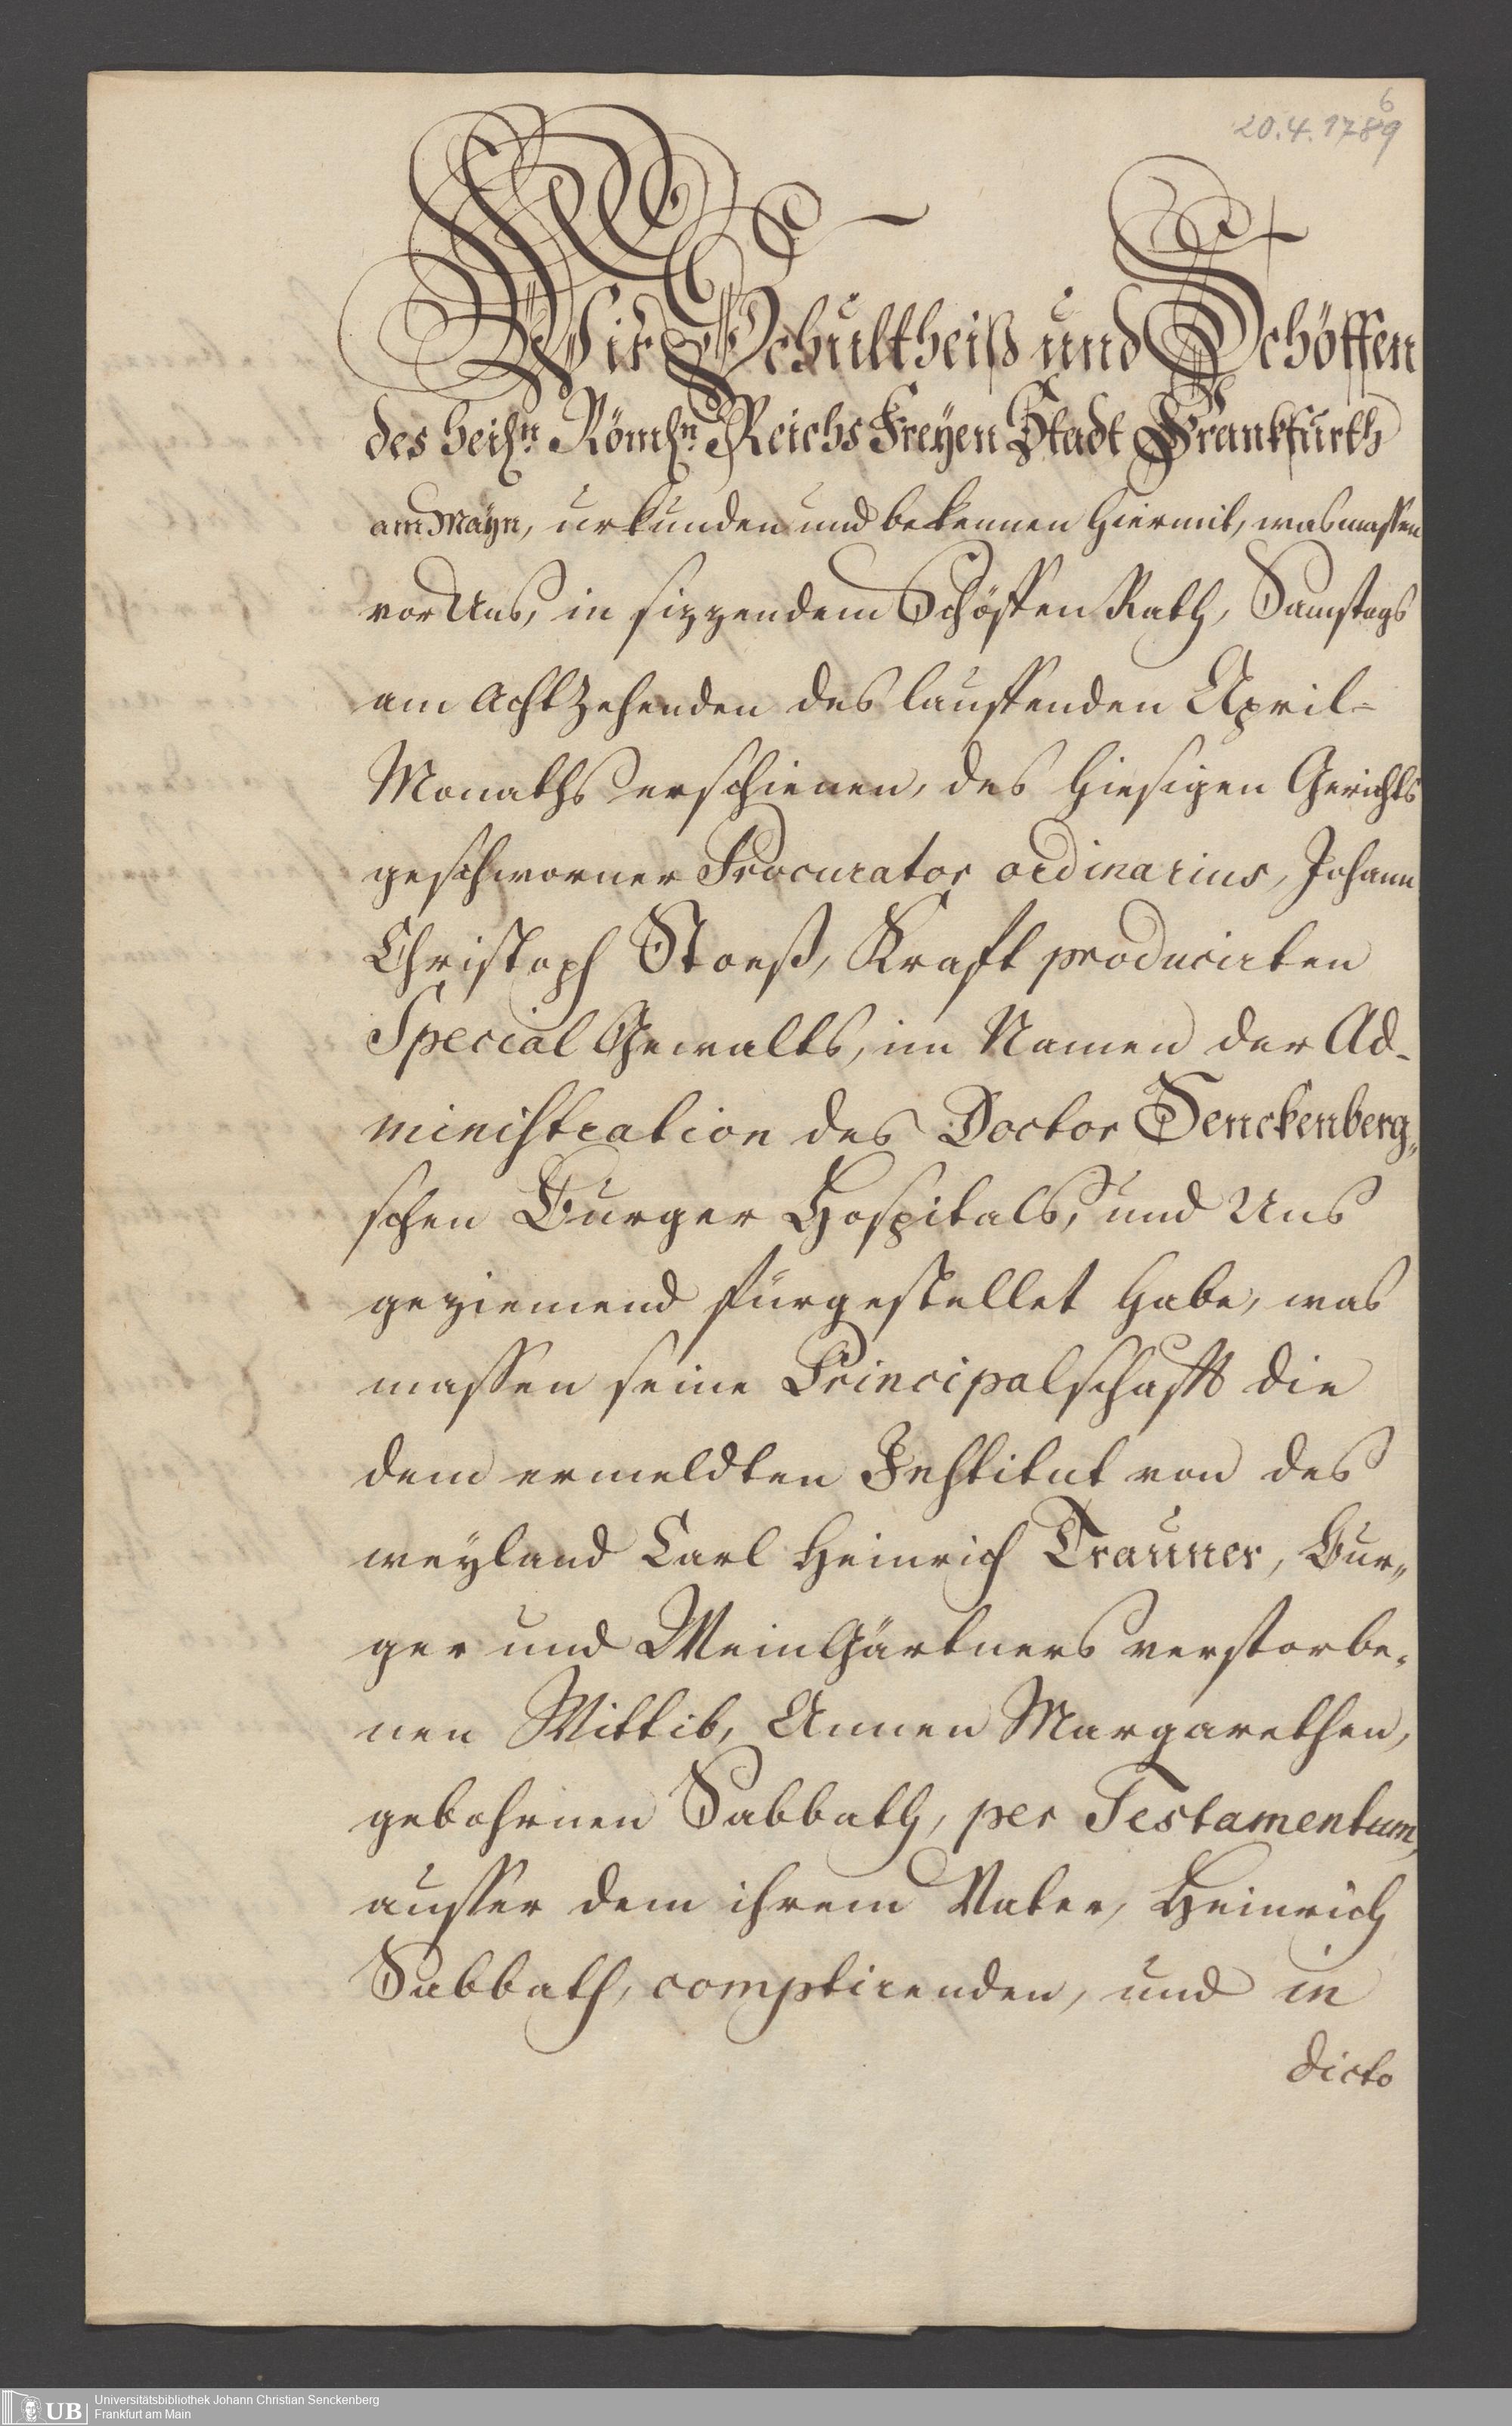 6
20.4.1789
Wir Schultheiß und Schöffen
des heil̄n Römsn Reichs Freyen Stadt Franckfurth
am Mayn, urkunden und bekennen hiermit, was massen
vor Uns, in sizzendem Schöffen Rath, Samstags
am Achtzehenden des lauffenden April-
Monaths erschienen, des hiesigen Gerichts
geschworner Procurator ordinarius, Johann
Christoph Stoess, Kraft producirten
Special Gewalts, im Namen der Ad-
ministration des Doctor Senckenberg„
schen Burger Hospitals, und Uns
geziemend fürgestellet habe, was
massen seine Principalschafft die
dem ermeldten Institut von des
weyland Carl Heinrich Trauner, Bur„
ger und WeinGärtners verstorbe-
nen Wittib, Annen Margarethen,
gebohrnen Sabbath, per Testamentum,
ausser dem ihrem Vater, Heinrich
Sabbath, comptirenden, und in
dicto
UB
Universitätsbibliothek Johann Christian Senckenberg
Frankfurt am Main